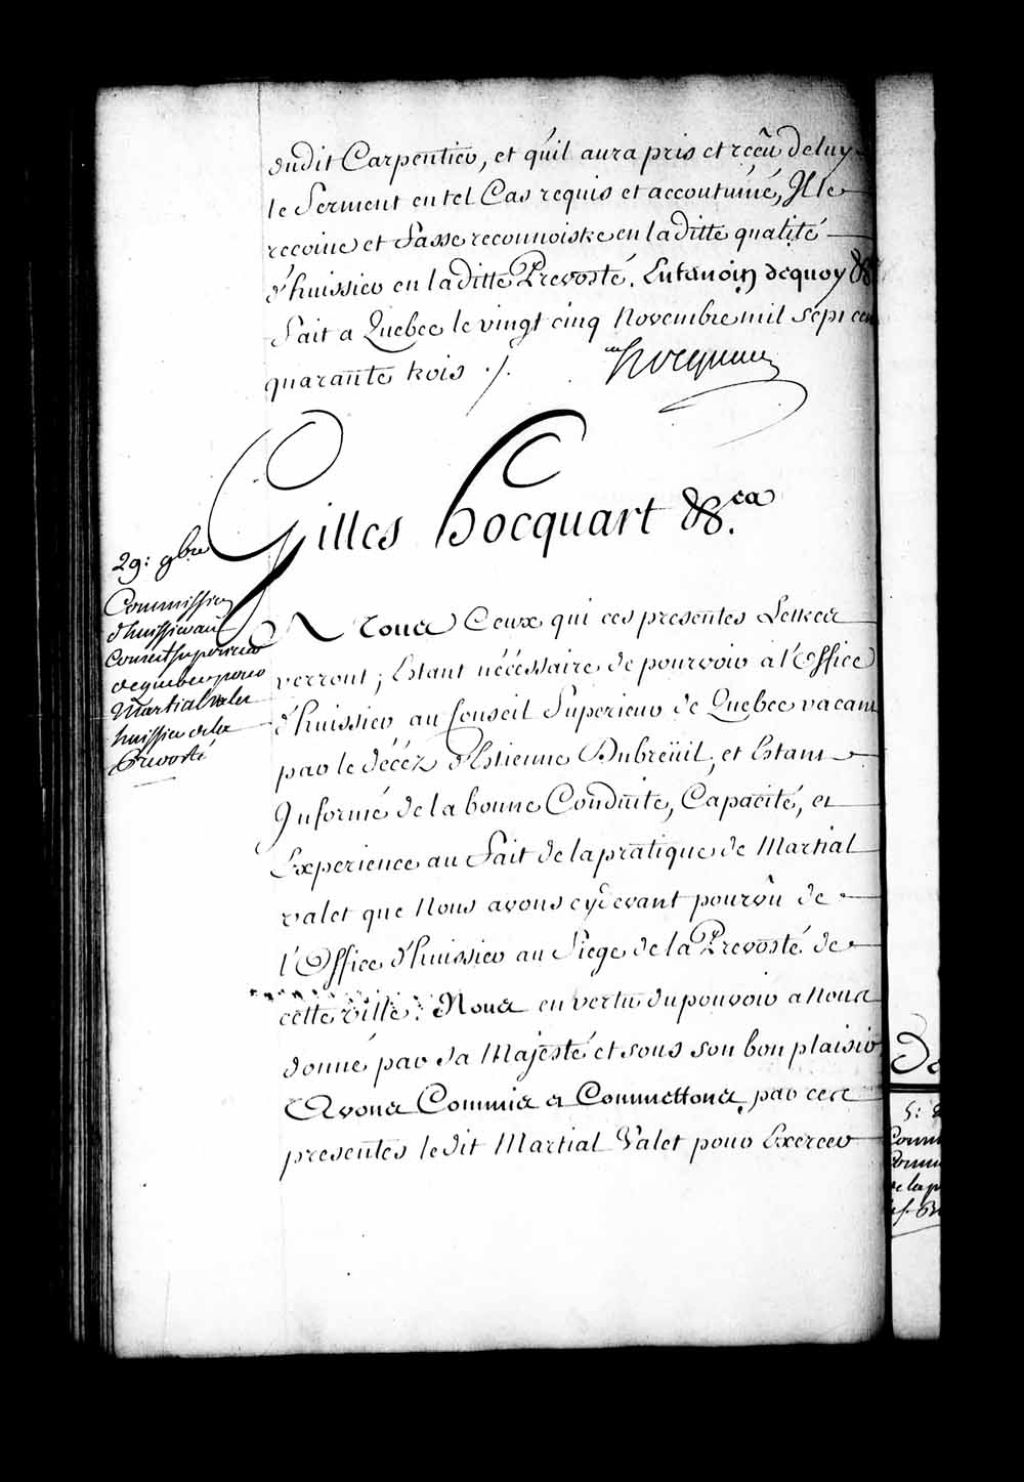 dudit Carpentier, et qu'il aura pris et reçû de luy
le Serment en tel Cas requis et accoutumé, Il le
recoive et fasse reconnoistre en la ditte qualité
d'huissier en la ditte Prevosté. En temoin de quoy &
fait a Quebec le vingt cinq Novembre mil sept cen
quarante trois ./.
hocquart
Gilles hocquart &c.ca
29: 9bre
Commission
d'huissier au
Conseil Superieur
de quebec pour
Martial valet
huissier de la
Prevosté
A Tous Ceux qui ces presentes Lettres
verront; Estant nécéssaire de pourvoir à l'Office
d'huissier au Conseil Superieur de Quebec vacant
par le décéz d'Estienne Dubreüil, et Estant
Informé de la bonne Conduite, Capacité, et
Experience au fait de la pratique de Martial
valet que Nous avons cydevant pourvû de
l'Office d'huissier au Siege de la Prevosté de
cette ville: Nous en vertu du pouvoir a Nous
donné par Sa Majesté et sous son bon plaisir
Avons Commis et Commettons par ces
presentes le dit Martial Valet pour Exercer
De
5:
Comm
de la p